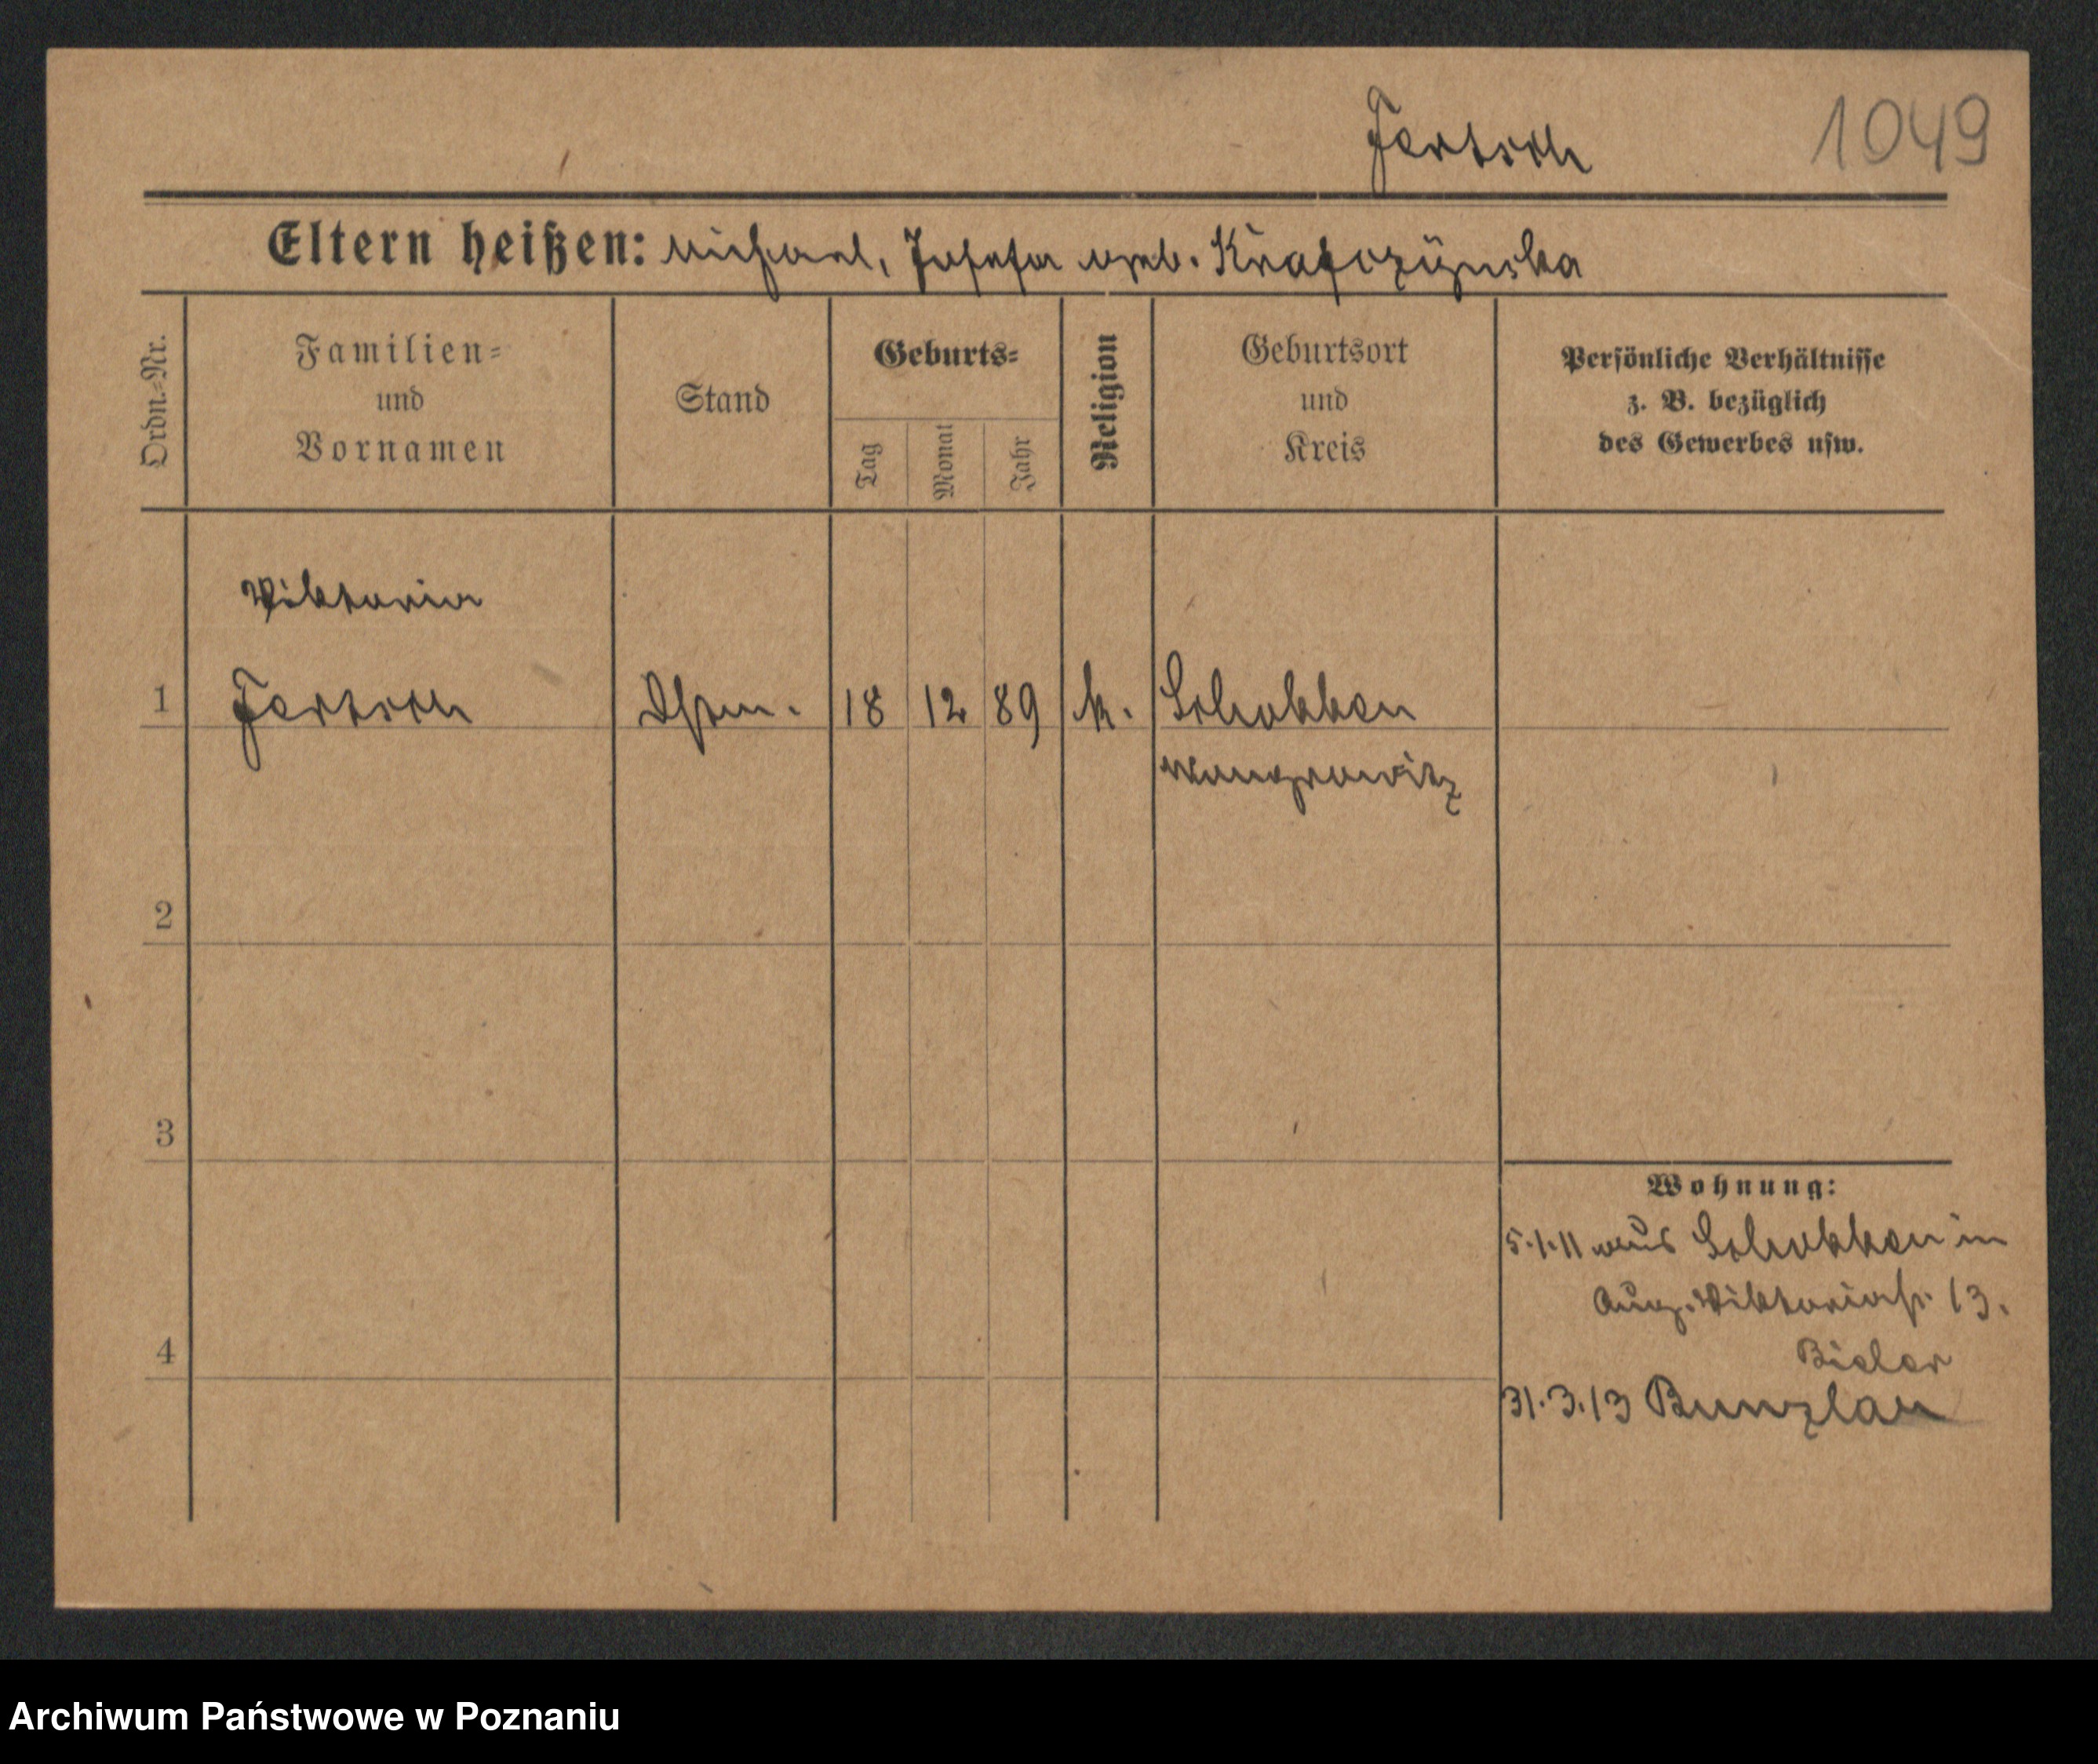 Jertsch 1049
Eltern heißen: Michael, Josefa geb. Kraforzÿnska
Ordn.=Nr.
Familien=
und
Vornamen
Stand
Geburts=
Tag
Monat
Jahr
Religion
Geburtsort
und
Kreis
Persönliche Verhältnisse
z. B. bezüglich
des Gewerbes usw.
Viktoria
1 Jertsch Dstm. 18 12 89 k. Schokken
Wongrowitz
2
3
Wohnung:
5.1.11 aus Schokken in
Aug. Viktoriastr. 13.
4
Bieler
31.3.13 Bunzlau
Archiwum Państwowe w Poznaniu